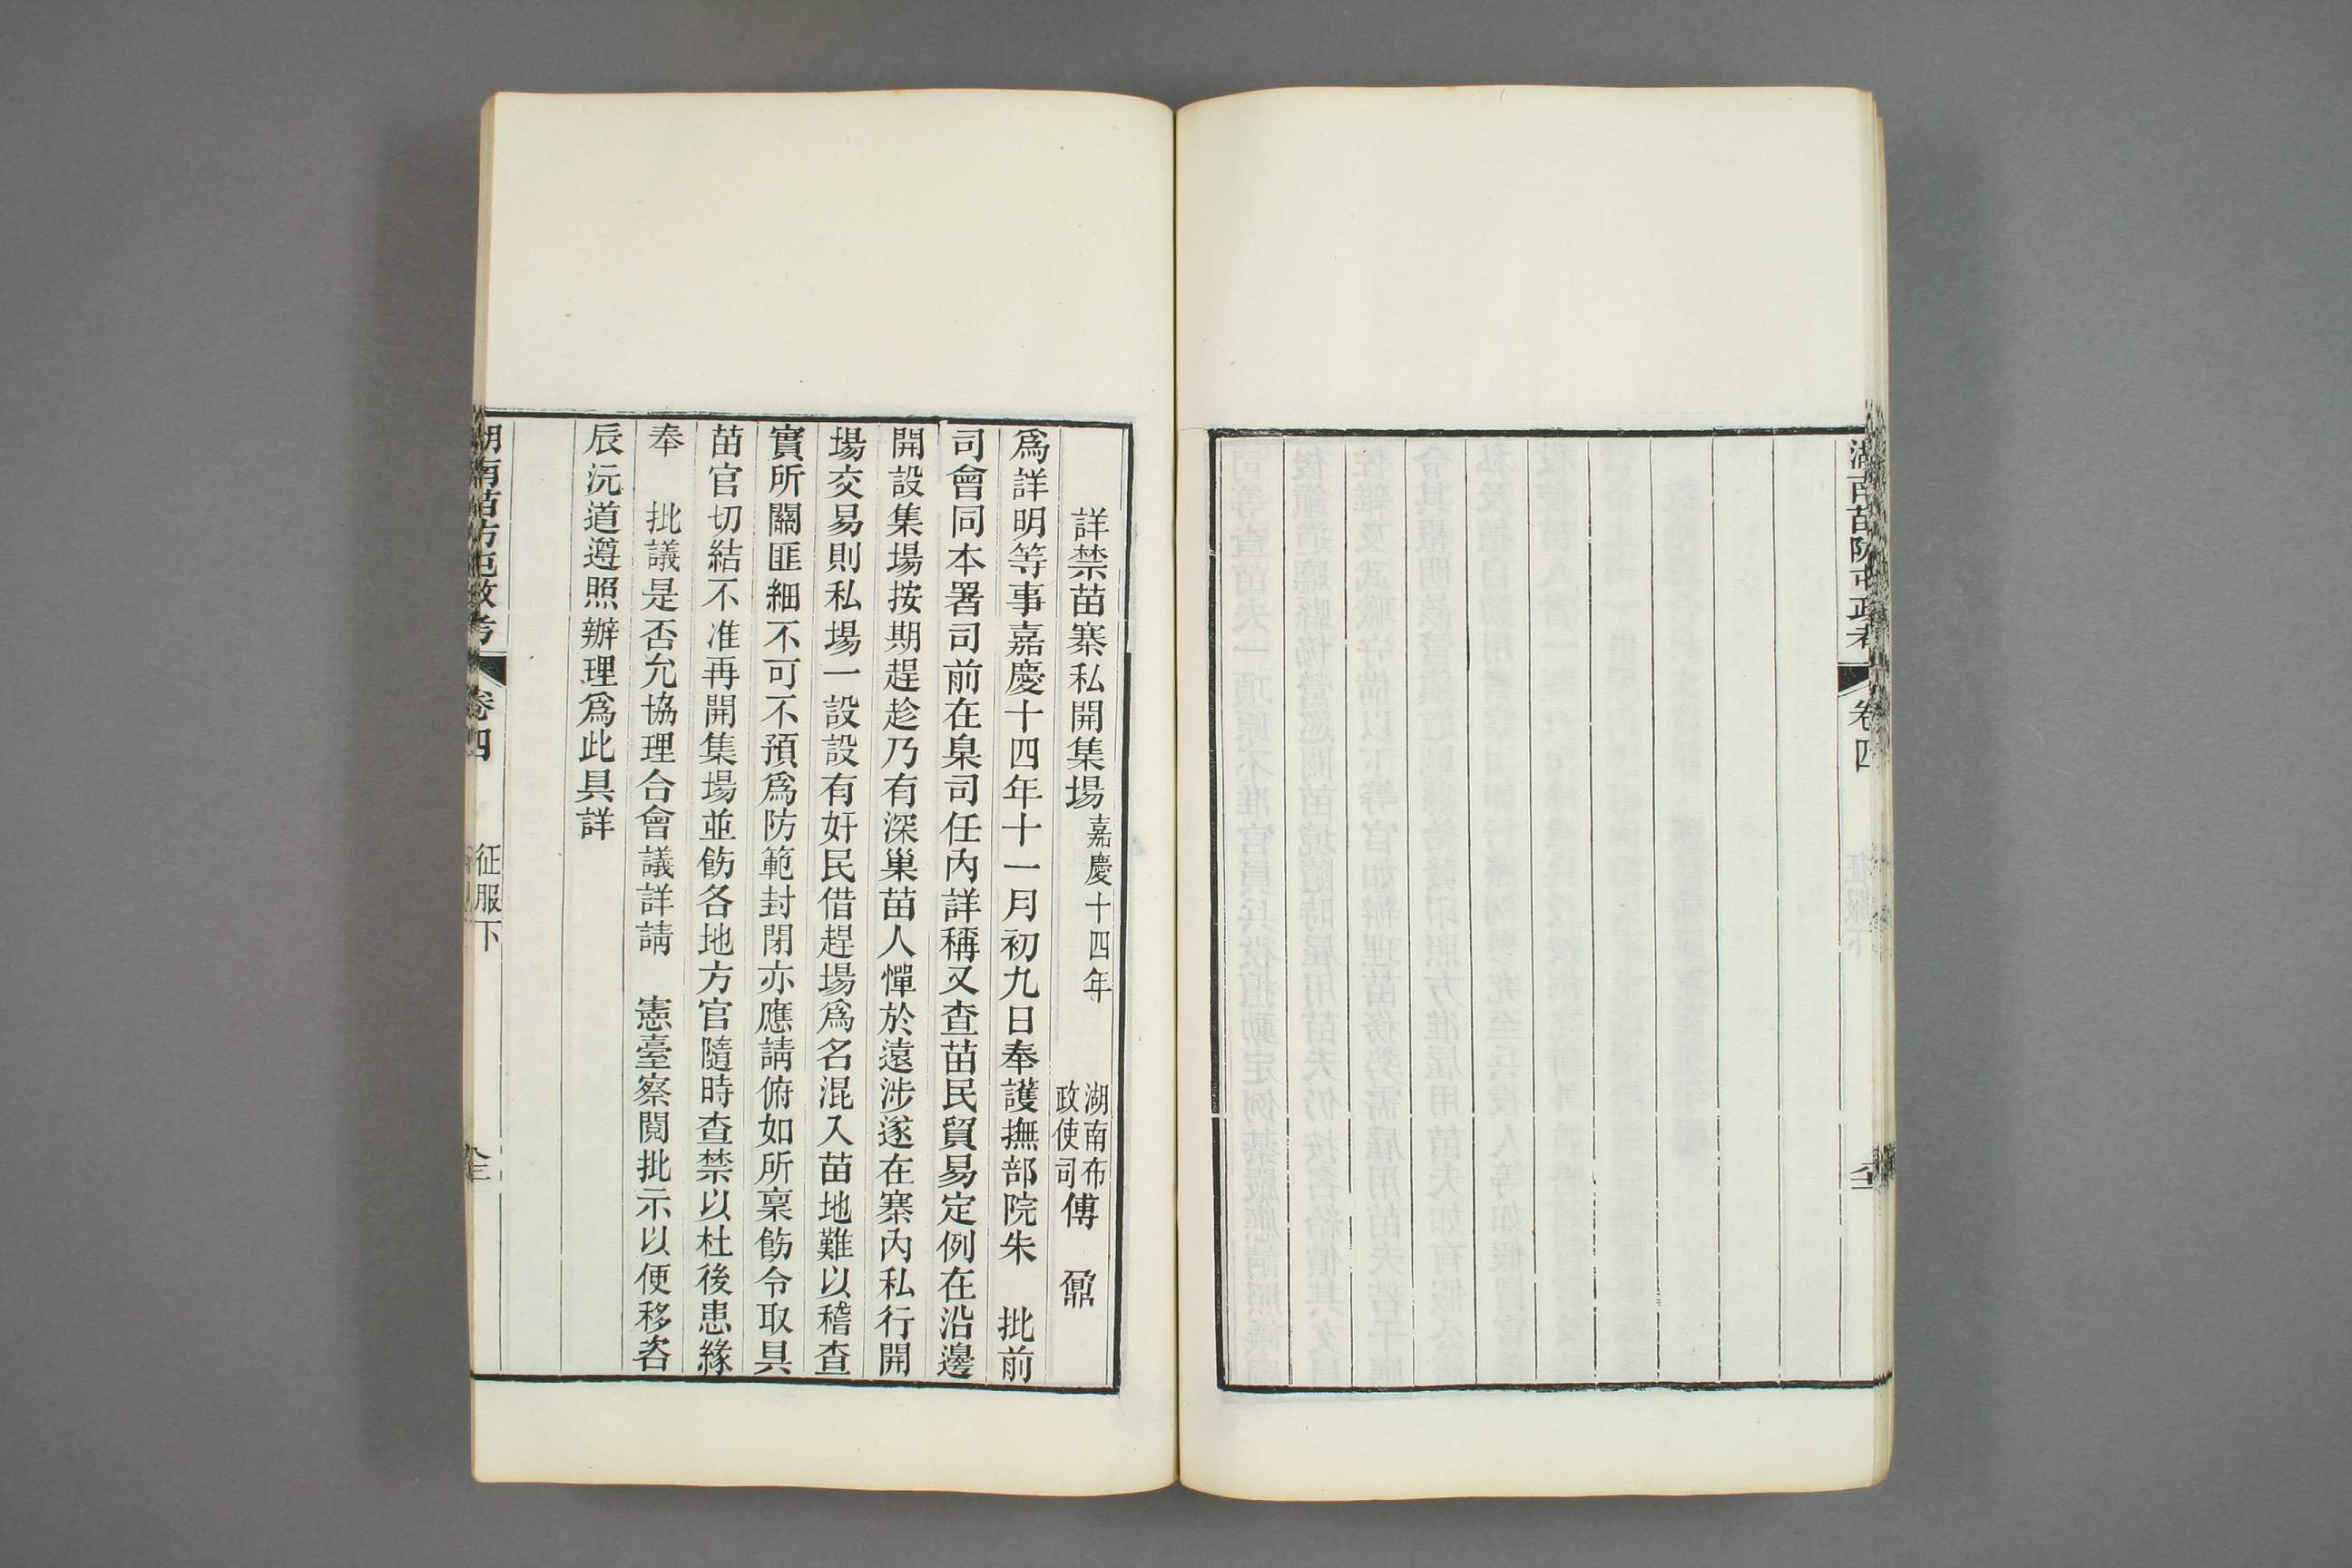 湖南苗防屯政考
卷四
詳禁苗寨私開集場 嘉慶十四年 湖南布政使司傅 鼐
爲詳明等事嘉慶十四年十一月初九日奉護撫部院朱 批前
司會同本署司前在臬司任內詳稱又查苗民貿易定例在沿邊
開設集場按期趕趁乃有深巢苗人憚於遠涉遂在寨內私行開
場交易則私場一設設有奸民借趕場爲名混入苗地難以稽查
實所關匪細不可不預爲防範封閉亦應請俯如所稟飭令取具
苗官切結不准再開集場並飭各地方官隨時查禁以杜後患緣
奉 批議是否允協理合會議詳請 憲臺察閱批示以便移咨
辰沅道遵照辦理爲此具詳
湖南苗防屯政考
卷四
征服下